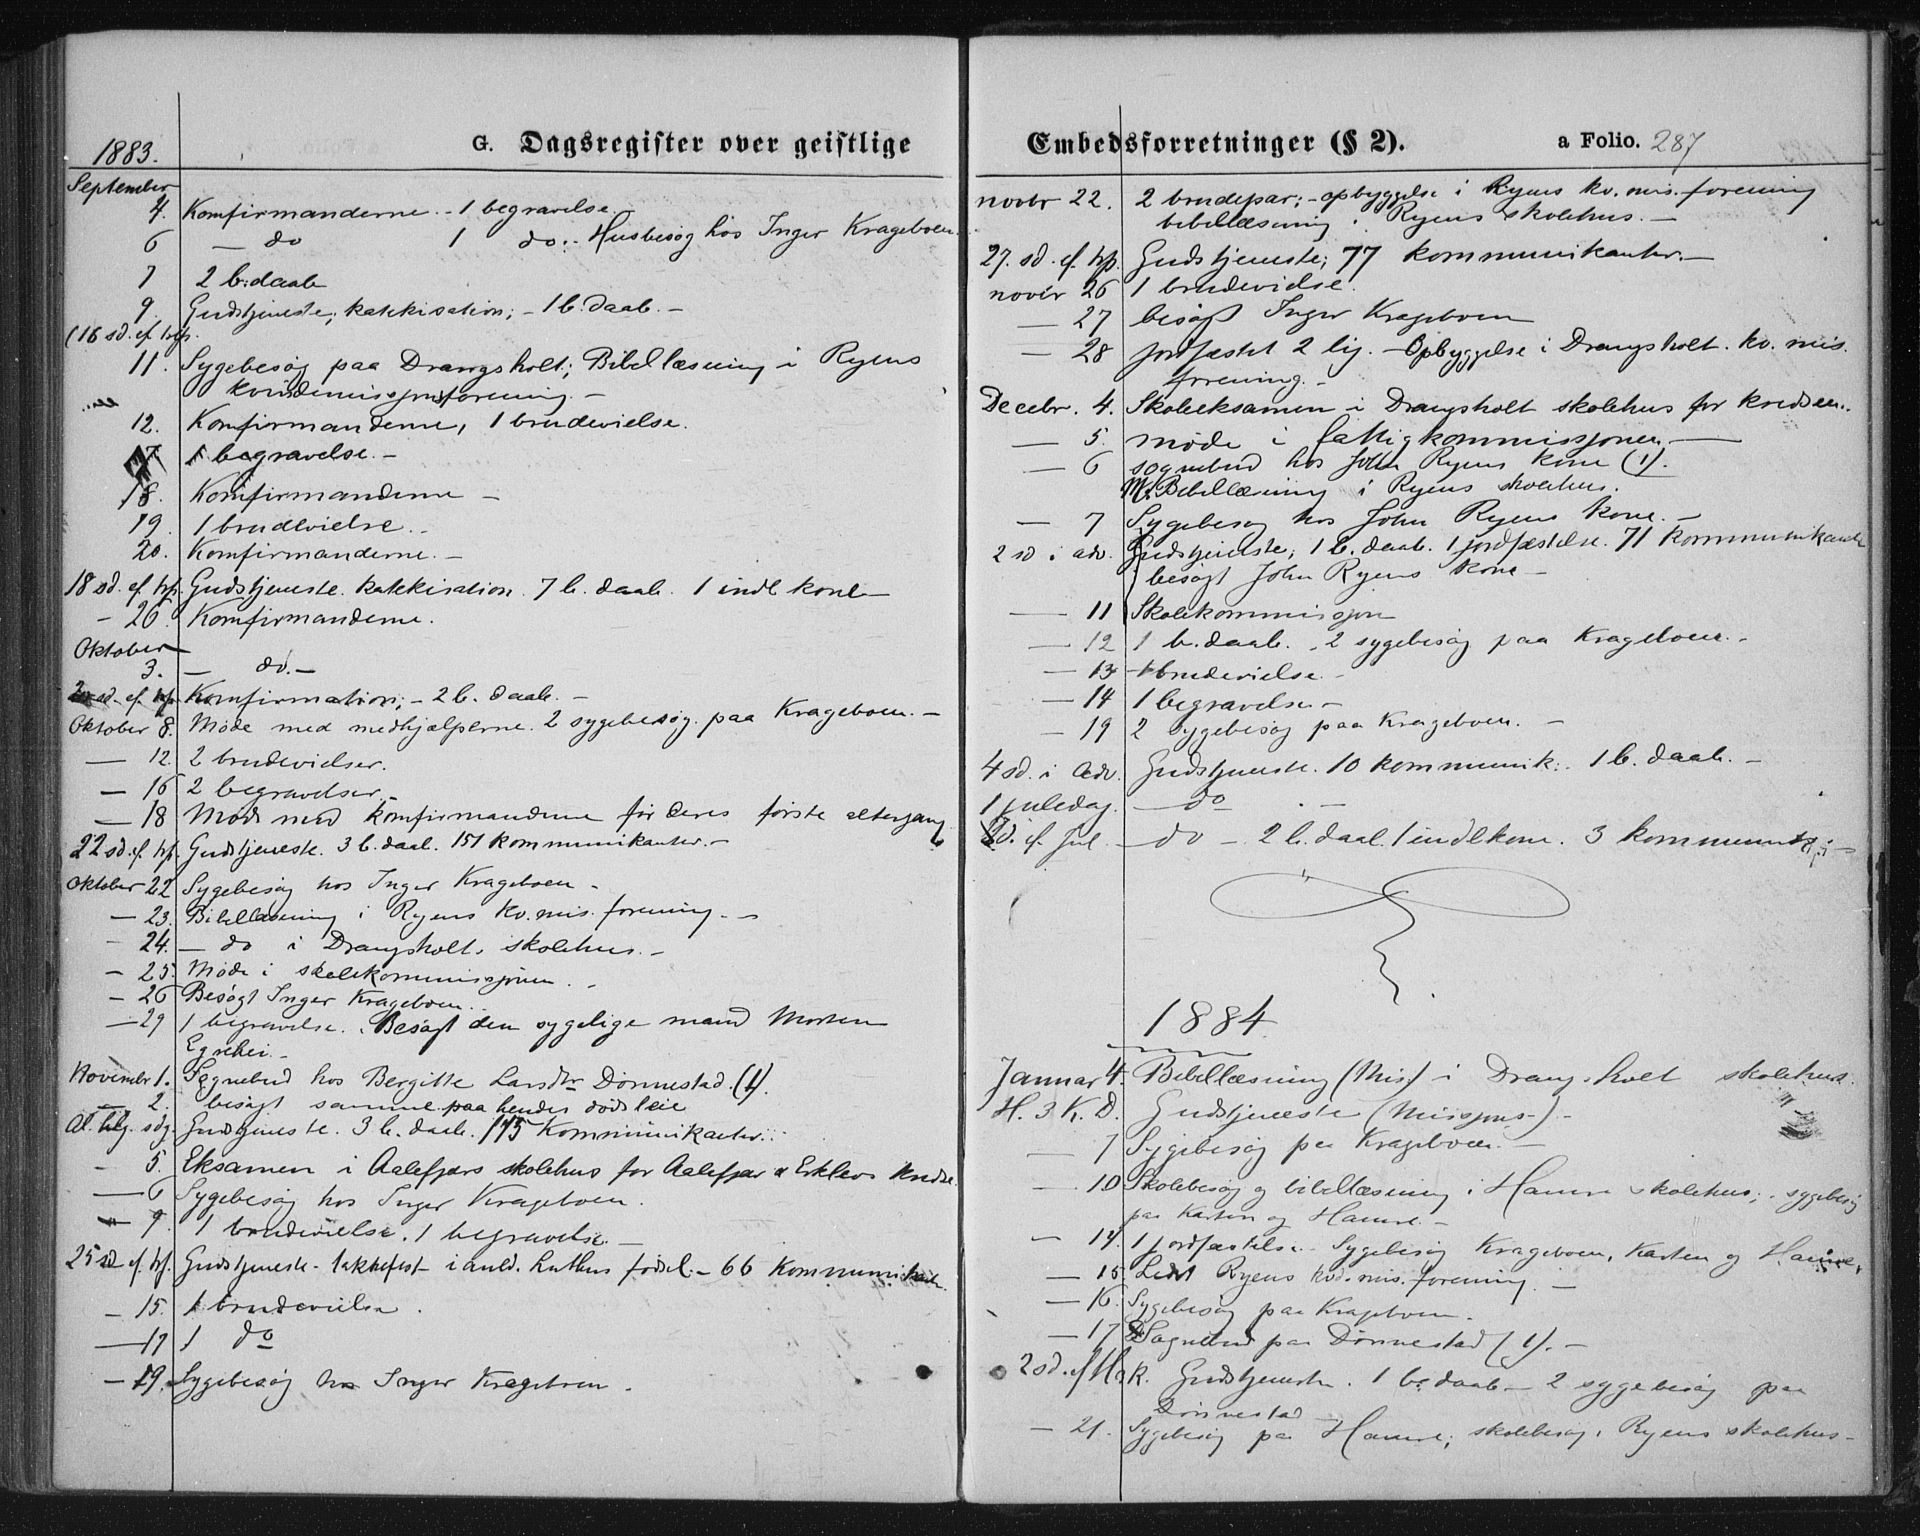 1883.
G. Dagsregister over geistlige
September
4. Komfirmanderne - 1 begravelse
6 — do 1 do. - Husbesøg hos Inger Krageboen.
7 2 b. daab
9. Gudstjeneste, katekisation; - 1 b. daab. -
(16 sd. ef. trf.
11. Sygebesøg paa Drangsholt; Bibellæsning i Ryens
kvindemissjonsforening. -
12. Komfirmanderne, 1 brudevielse.
17 1 begravelse. -
18. Komfirmanderne -
19. 1 brudevielse. -
20. Komfirmanderne. -
18 sd. ef. trf. Gudstjeneste. katekisation. 7 b. daab. 1 indl kone -
- 26. Komfirmanderne.
Oktober
3. — do. -
sd. ef. trf. Komfirmation; - 2 b. daab. -
Oktober 8. Møde med medhjælperne. 2 sygebesøg paa Krageboen. -
— 12. 2 brudevielser.
— 16 2 begravelser. -
— 18 Møde med komfirmanderne før deres første altergang
22 sd. ef. trf. Gudstjeneste. 3 b. daab. 151 kommunikanter. -
Oktober 22 Sygebesøg hos Inger Krageboen -
— 23. Bibellæsning i Ryens kv. mis. forening. -
- 24. — do i Drangsholt. skolehus. -
- 25. Møde i skolekommissjonen. -
- 26 Besøgt Inger Krageboen.
— 29 1 begravelse. Besøgt den sygelige mand Morten
Egrehei. -
Novembr 1. Sognebud hos Bergitte Larsdtr Dønnestad. (1).
— 2. besøgt samme paa hendes dødsleie
Al. helg. sdg. Gudstjeneste. 3 b. daab. 115 Kommunikanter.
- 5. Eksamen i Aalefjærs skolehus for Aalefjær & Erklevs kredse.
— 6 Sygebesøg hos Inger Krageboen.
— 9. 1 brudevielse. 1 begravelse. -
25 sd ef. trf. Gudstjeneste - takkefest i anld. Luthers fødsel. - 66 Kommunikanter
- 15. 1 brudevielse.
— 17 1 do
- 19. Sygebesøg hos Inger Krageboen.
Embedsforretninger (§ 2). a Folio. 287
novbr 22. 2 brudepar; - opbyggelse i Ryens kv. mis. forening
bibellæsning i Ryens skolehus. -
27. sd. ef. trf. Gudstjeneste; 77 kommunikanter. -
novbr 26 1 brudevielse.
— 27 besøgt Inger Krageboen
— 28 jordfæstet 2 lig. - Opbyggelse i Drangsholt. kv. mis.
forening. -
Decebr. 4. Skoleeksamen i Drangsholt skolehus for kredsen.
— 5. møde i fattigkommissjonen. —
— 6 sognebud hos John Ryens kone (1).
Bibellæsning i Ryens skolehus.
— 7 Sygebesøg hos John Ryens kone. -
2 sd i adv. Gudstjeneste; 1 b. daab. 1 jordfæstelse. 71 kommunikanter
besøgt John Ryens kone -
— 11 Skolekommissjon
— 12 1 b. daab. 2 sygebesøg paa Krageboen. -
— 13 1 brudevielse. -
— 14 1 begravelse -
— 19 2 sygebesøg paa Krageboen. -
4 sd. i adv. Gudstjeneste. 10 kommunik. 1 b. daab. -
1 juledag. — do -
Sd. ef. Jul — do - 2 b. daab. 1 indl kone. 3 kommunik
1884
Januar 4. Bibellæsning (Mis) i Drangsholt skolehus.
H. 3 K. D. Gudstjeneste (Missjons-). -
— 7 Sygebesøg paa Krageboen -
— 10 Skolebesøg og bibellæsning i Hamre skolehus; sygebesøg
paa Karten og Hamre. -
- 14. 1 jordfæstelse. Sygebesøg Krageboen, Karten og Hamre,
— 15 Ledet Ryens kvd. mis. forening. -
— 16. Sygebesøg paa Krageboen.
— 17 Sognebud paa Dønnestad (1). -
2 sd. ef H3k. Gudstjeneste. 1 b. daab - 2 sygebesøg paa
Dønnestad
- 21. Sygebesøg paa Hamre; skolebesøg, Ryens skolehus -